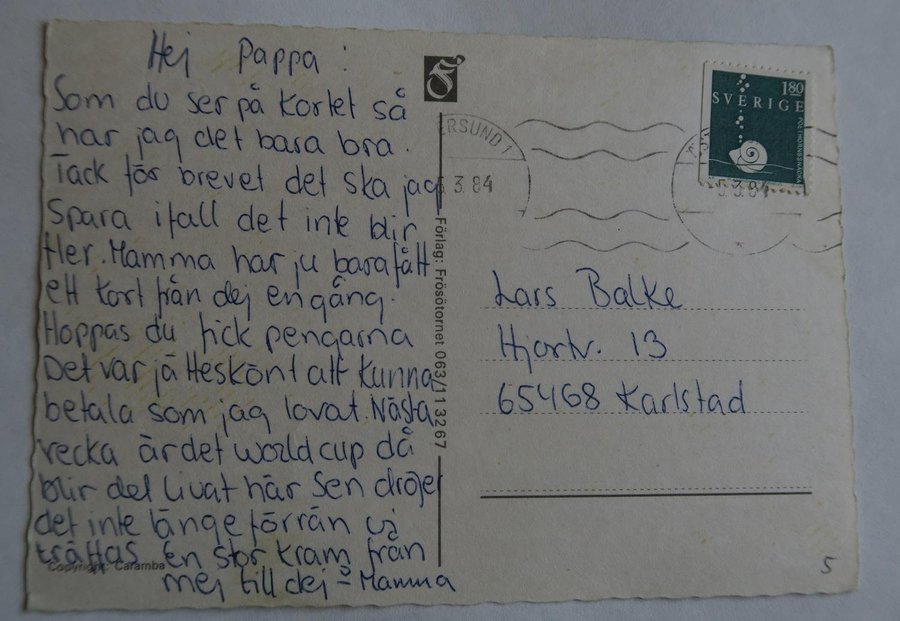 Hej Pappa!
Som du ser på kortet så
har jag det bara bra.
Tack för brevet det ska jag
Spara ifall det inte blir
fler. Mamma har ju bara fått
ett kort från dej en gång.
Hoppas du fick pengarna
Det var jätteskönt att kunna
betala som jag lovat. Nästa
vecka är det world cup då
blir det livat här Sen dröjer
det inte länge förrän vi
träffas En stor kram från
mej till dej = Mamma
Copyright: Caramba
Förlag: Frösötornet 063/11 32 67
ERSUND 1
3.84
SVERIGE
1.80
POSTHORNSSNÄCKA
5.3.84
Lars Balke
Hjortv. 13
65468 Karlstad
5